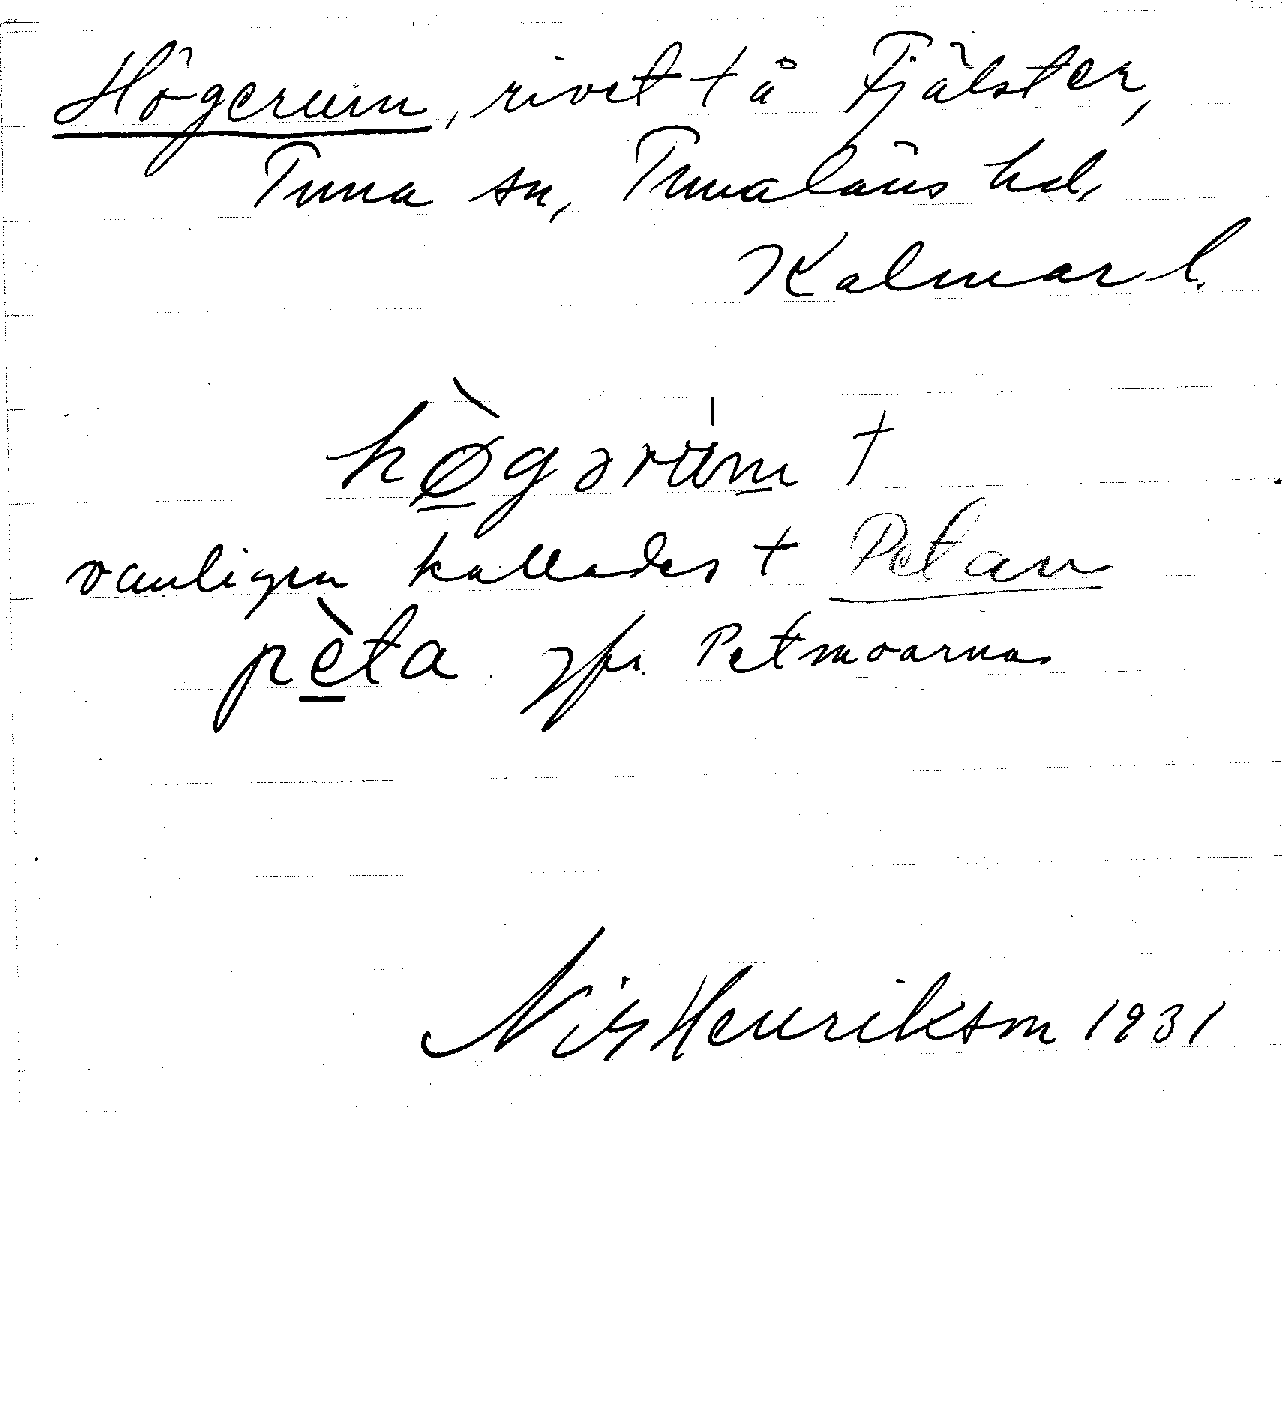 Högerum, rivet t å Fjälster,
Tuna sn, Tunaläns hd,
Kalmar l.
hø̀gərum †
vanligen kallades † Petan
pèta jfr Petmoarna
Nils Henrikson 1931